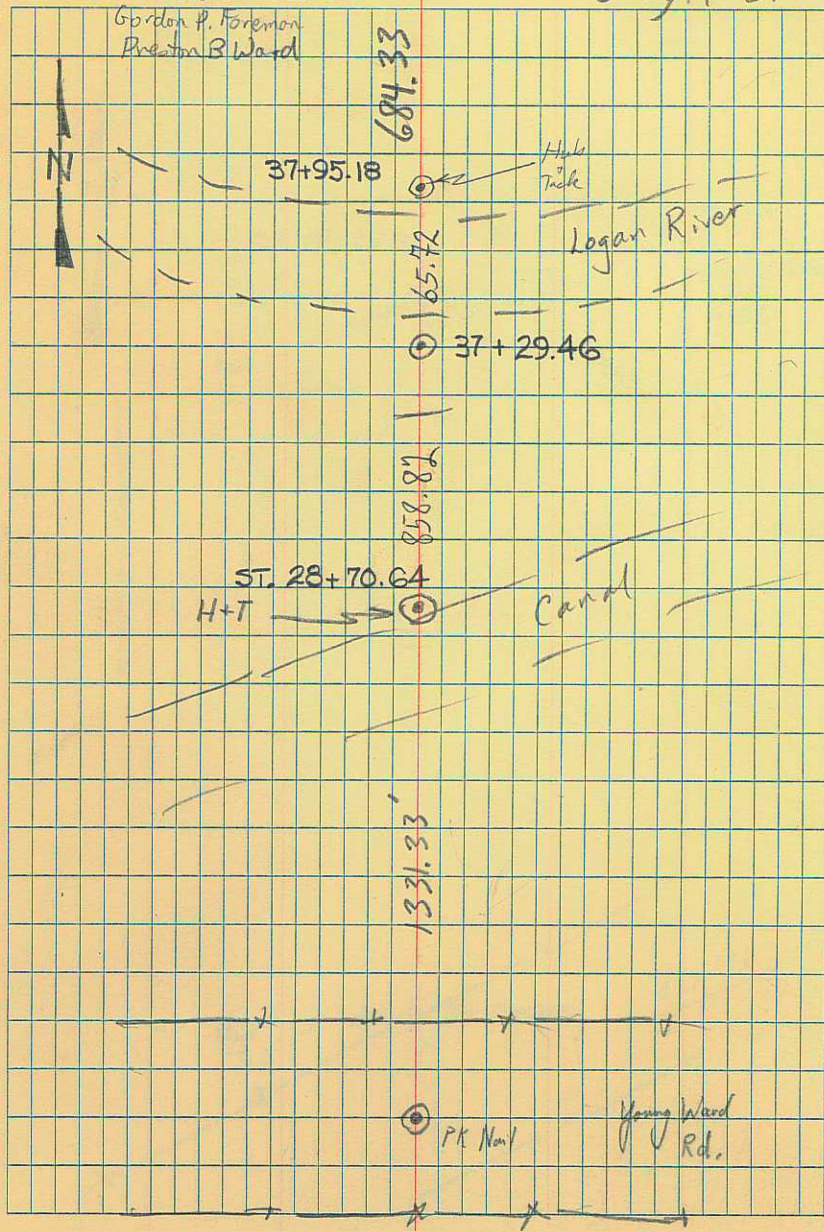 Gordon P. Foreman
Preston B Ward
684.33
N
37+95.18
Hub
Tack
Logan River
65.72
37+29.46
858.82
ST. 28+70.64
H+T
Canal
1331.33'
PK Nail
Young Ward
Rd.